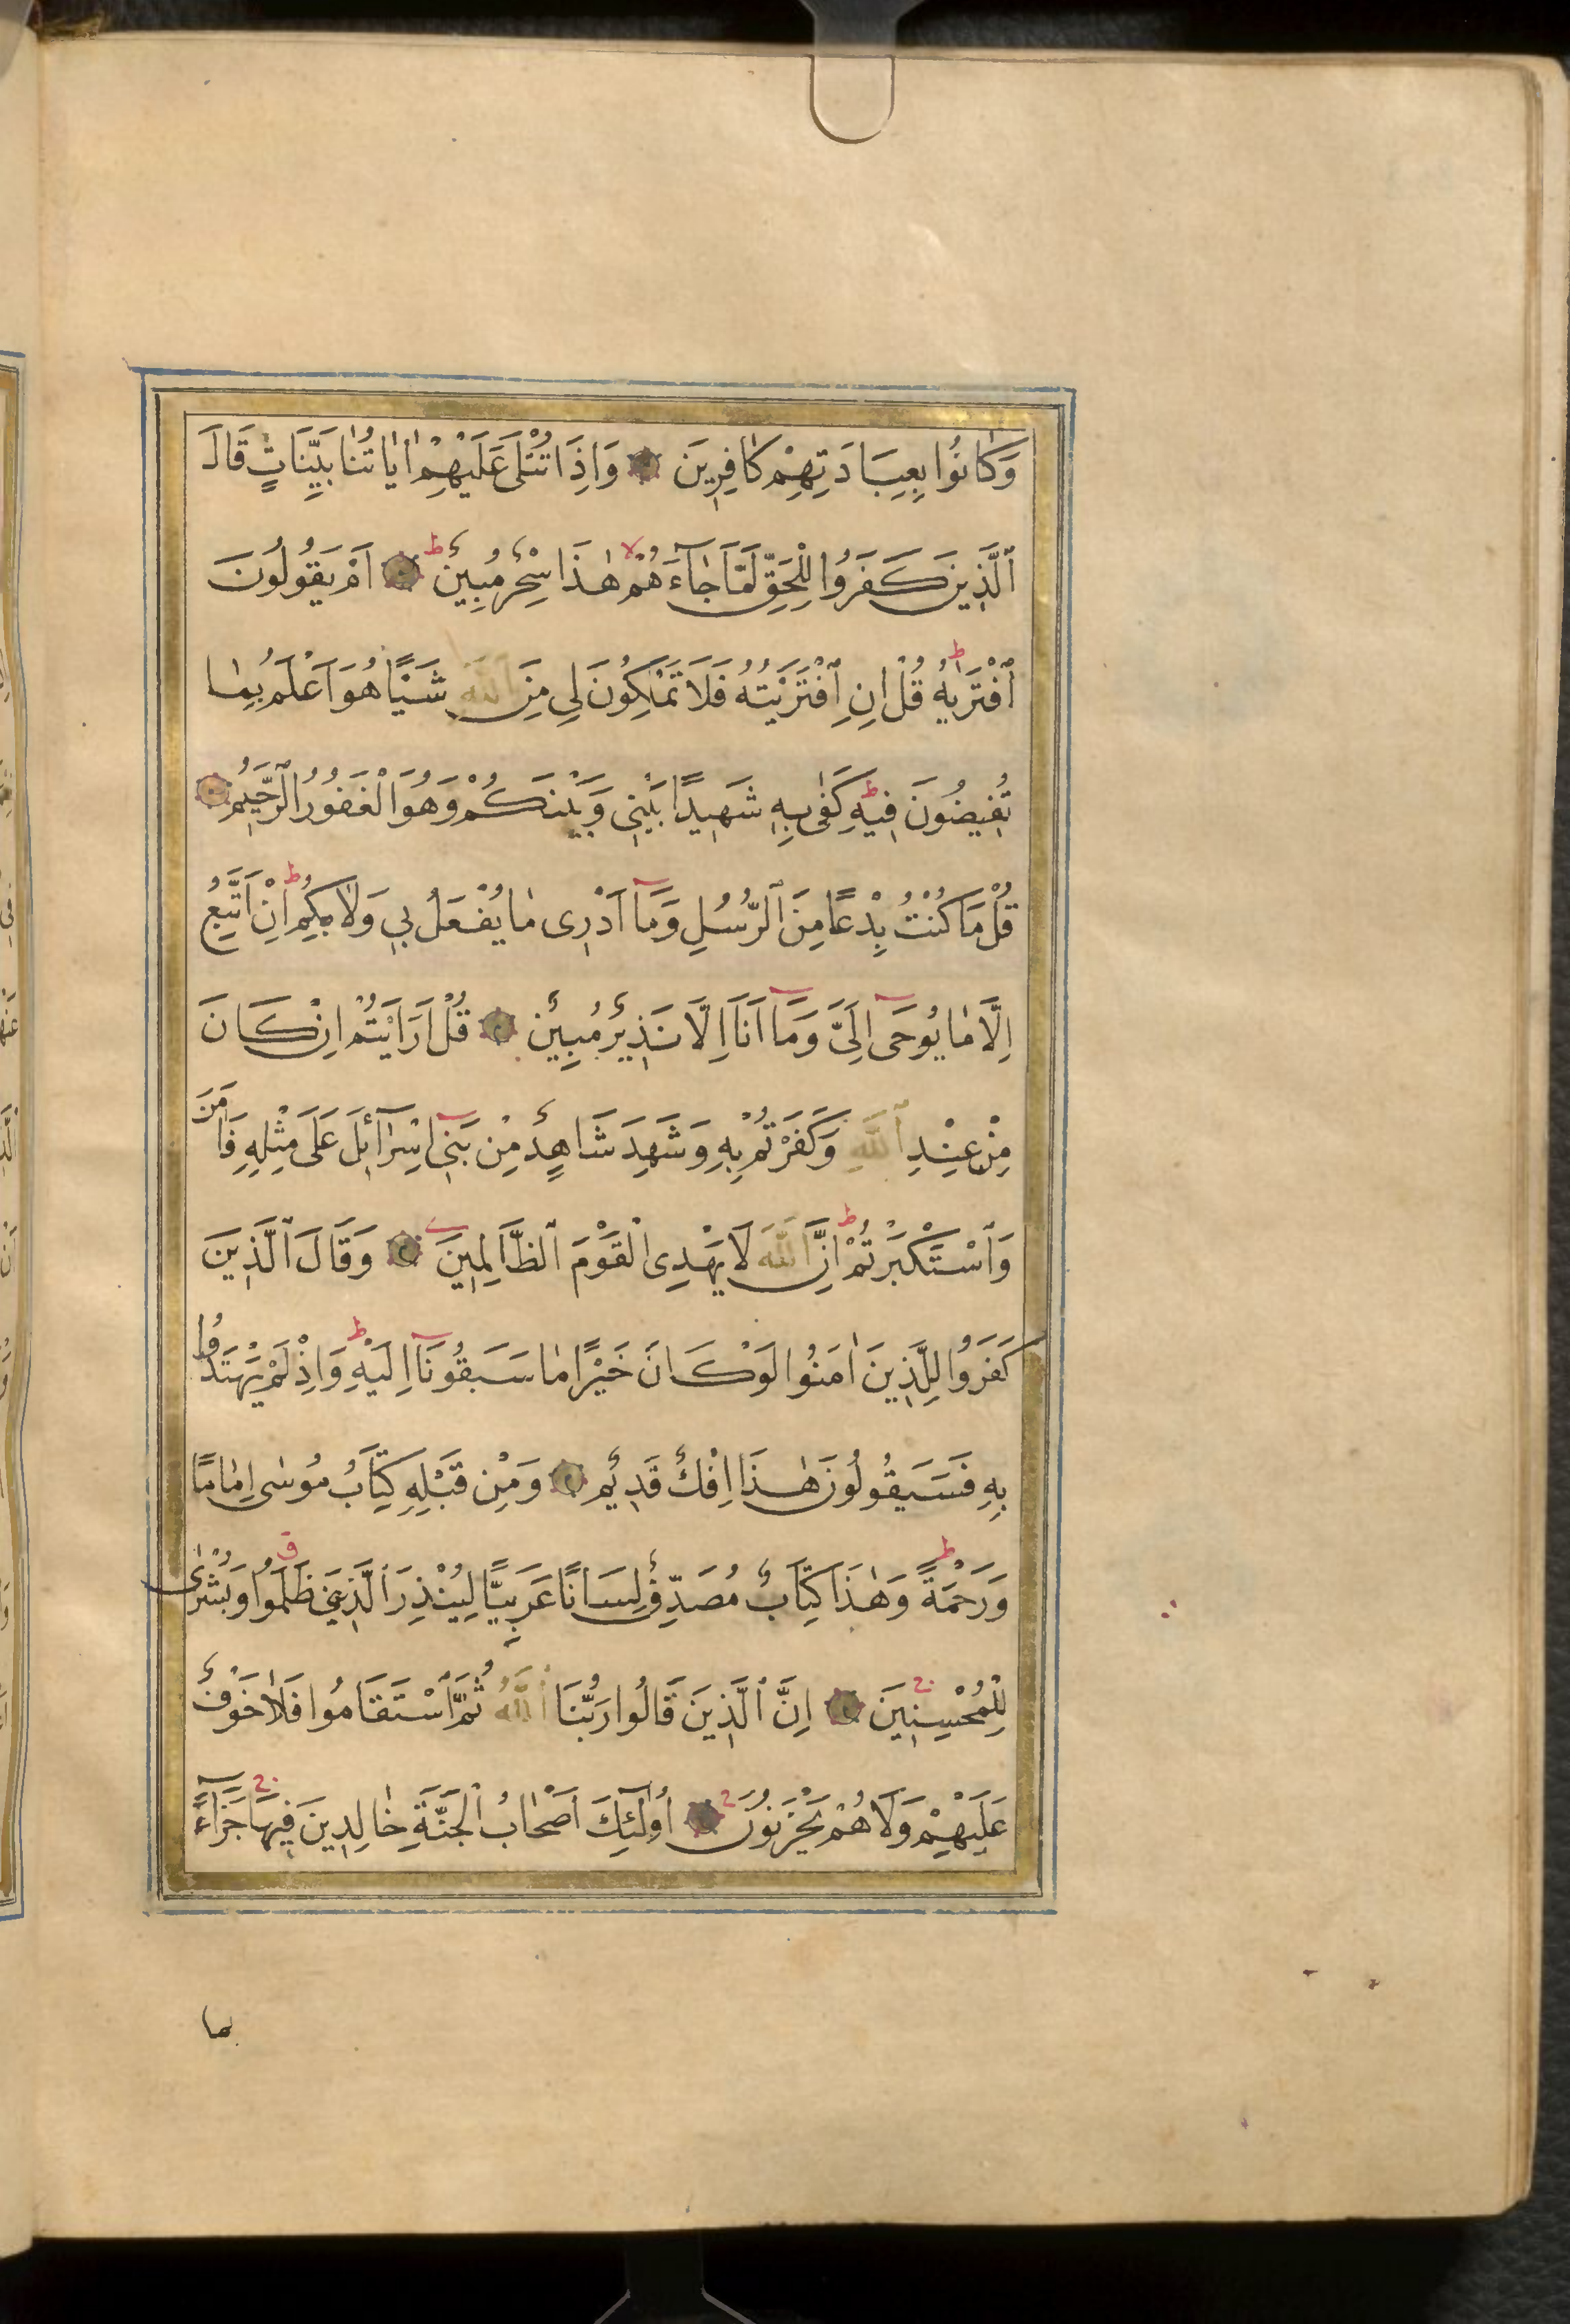 وَكَانُوا بِعِبَادَتِهِمْ كَافِرِينَ وَاِذَا تُتْلَى عَلَيْهِمْ اٰيَاتُنَا بَيِّنَاتٍ قَالَ
ٱلَّذِينَ كَفَرُوا لِلْحَقِّ لَمَّا جَآءَهُمْ هٰذَا سِحْرٌ مُبِينٌ اَمْ يَقُولُونَ
ٱفْتَرَيٰهُ قُلْ اِنِ ٱفْتَرَيْتُهُ فَلَا تَمْلِكُونَ لِي مِنَ ٱللَّهِ شَيْـًٔا هُوَ اَعْلَمُ بِمَا
تُفِيضُونَ فِيهِ كَفٰى بِهِ شَهِيدًا بَيْنِي وَبَيْنَكُمْ وَهُوَ الْغَفُورُ ٱلرَّحِيمُ
قُلْ مَا كُنْتُ بِدْعًا مِنَ ٱلرُّسُلِ وَمَآ اَدْرِى مَا يُفْعَلُ بِي وَلَا بِكُمْ اِنْ اَتَّبِعُ
اِلَّا مَا يُوحَىٓ اِلَيَّ وَمَآ اَنَا۬ اِلَّا نَذِيرٌ مُبِينٌ قُلْ اَرَاَيْتُمْ اِنْ كَانَ
مِنْ عِنْدِ ٱللَّهِ وَكَفَرْتُمْ بِهِ وَشَهِدَ شَاهِدٌ مِنْ بَنِيٓ اِسْرَآئِلَ عَلَى مِثْلِهِ فَاٰمَنَ
وَٱسْتَكْبَرْتُمْ اِنَّ ٱللَّهَ لَا يَهْدِى الْقَوْمَ ٱلظَّالِمِينَ وَقَالَ ٱلَّذِينَ
كَفَرُوا لِلَّذِينَ اٰمَنُوا لَوْ كَانَ خَيْرًا مَا سَبَقُونَآ اِلَيْهِ وَاِذْ لَمْ يَهْتَدُوا
بِهِ فَسَيَقُولُونَ هٰذَا اِفْكٌ قَدِيمٌ وَمِنْ قَبْلِهِ كِتَابُ مُوسٰى اِمَامًا
وَرَحْمَةً وَهٰذَا كِتَابٌ مُصَدِّقٌ لِسَانًا عَرَبِيًّا لِيُنْذِرَ ٱلَّذِينَ ظَلَمُوا وَبُشْرٰى
لِلْمُحْسِنِينَ اِنَّ ٱلَّذِينَ قَالُوا رَبُّنَا ٱللَّهُ ثُمَّ ٱسْتَقَامُوا فَلَا خَوْفٌ
عَلَيْهِمْ وَلَا هُمْ يَحْزَنُونَ اُولٰٓئِكَ اَصْحَابُ الْجَنَّةِ خَالِدِينَ فِيهَا جَزَآءً
بما